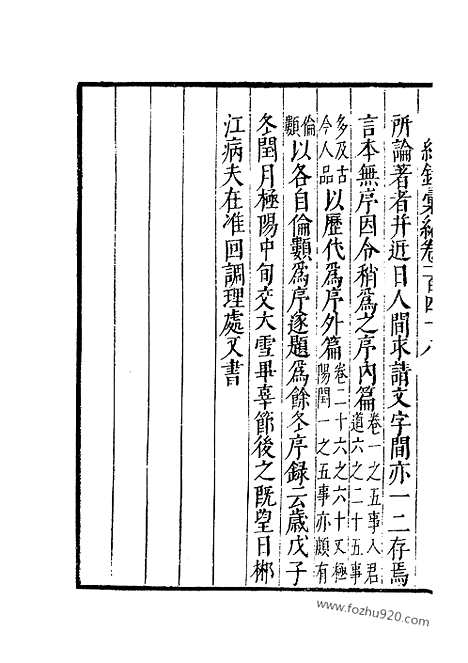 紀錄彙編卷一百四十八
所論著者并近日人間求請文字間亦一二存焉
言本無序因今稍爲之序內篇卷一之五事人君道六之二十五事
多及古今人品以歷代爲序外篇卷二十六之六十又極陽閏一之五事亦頗有
倫類以各自倫類爲序遂題爲餘冬序録云歲戊子
冬閏月極陽中旬交大雪畢辜節後之既望日郴
江病夫在准回調理處又書
www.fozhu920.com